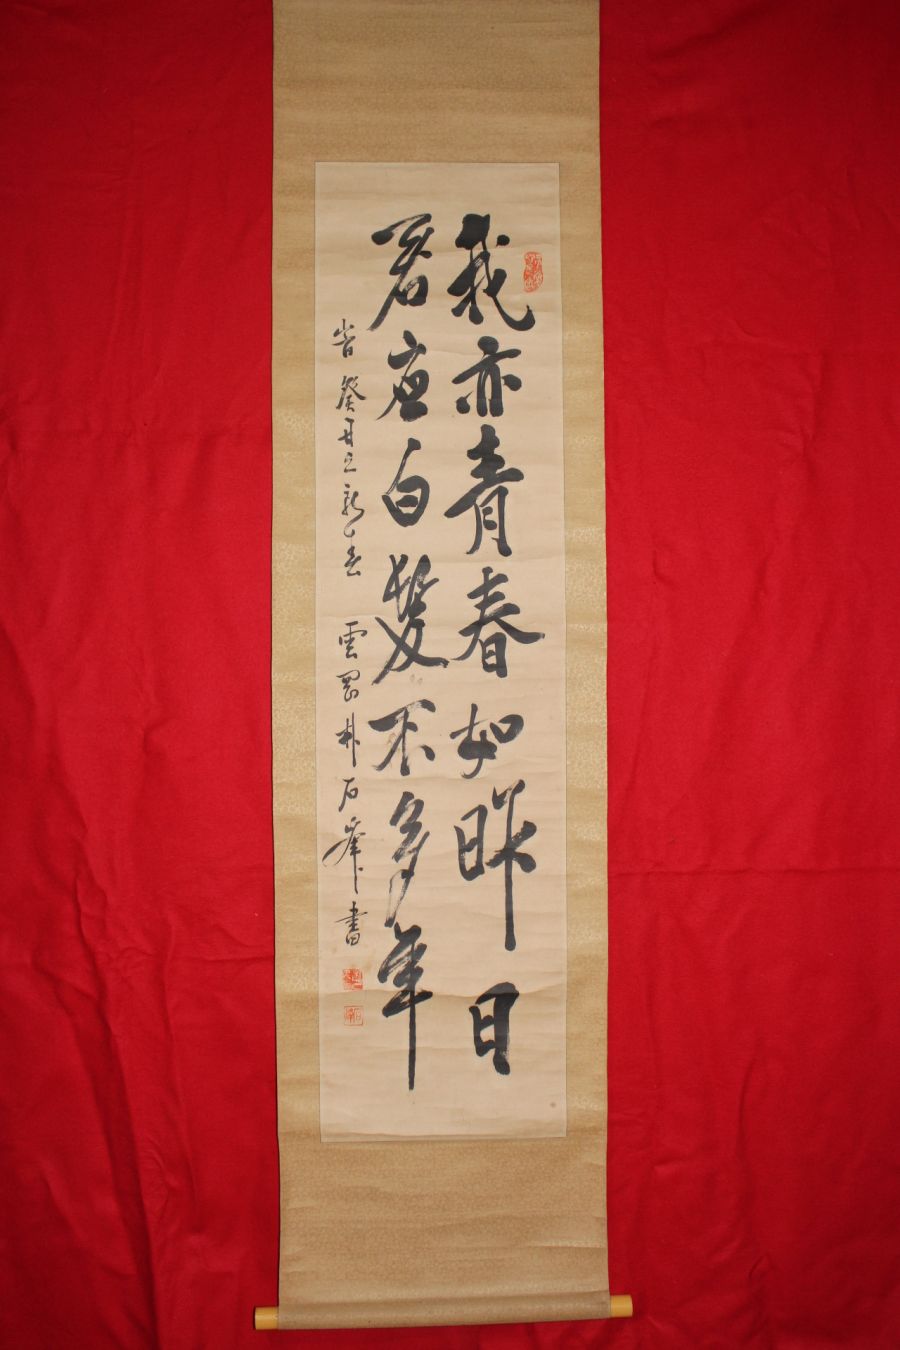 我亦青春如昨日
君應白髮不多年
昔癸丑之新春 雲岡朴石峯書